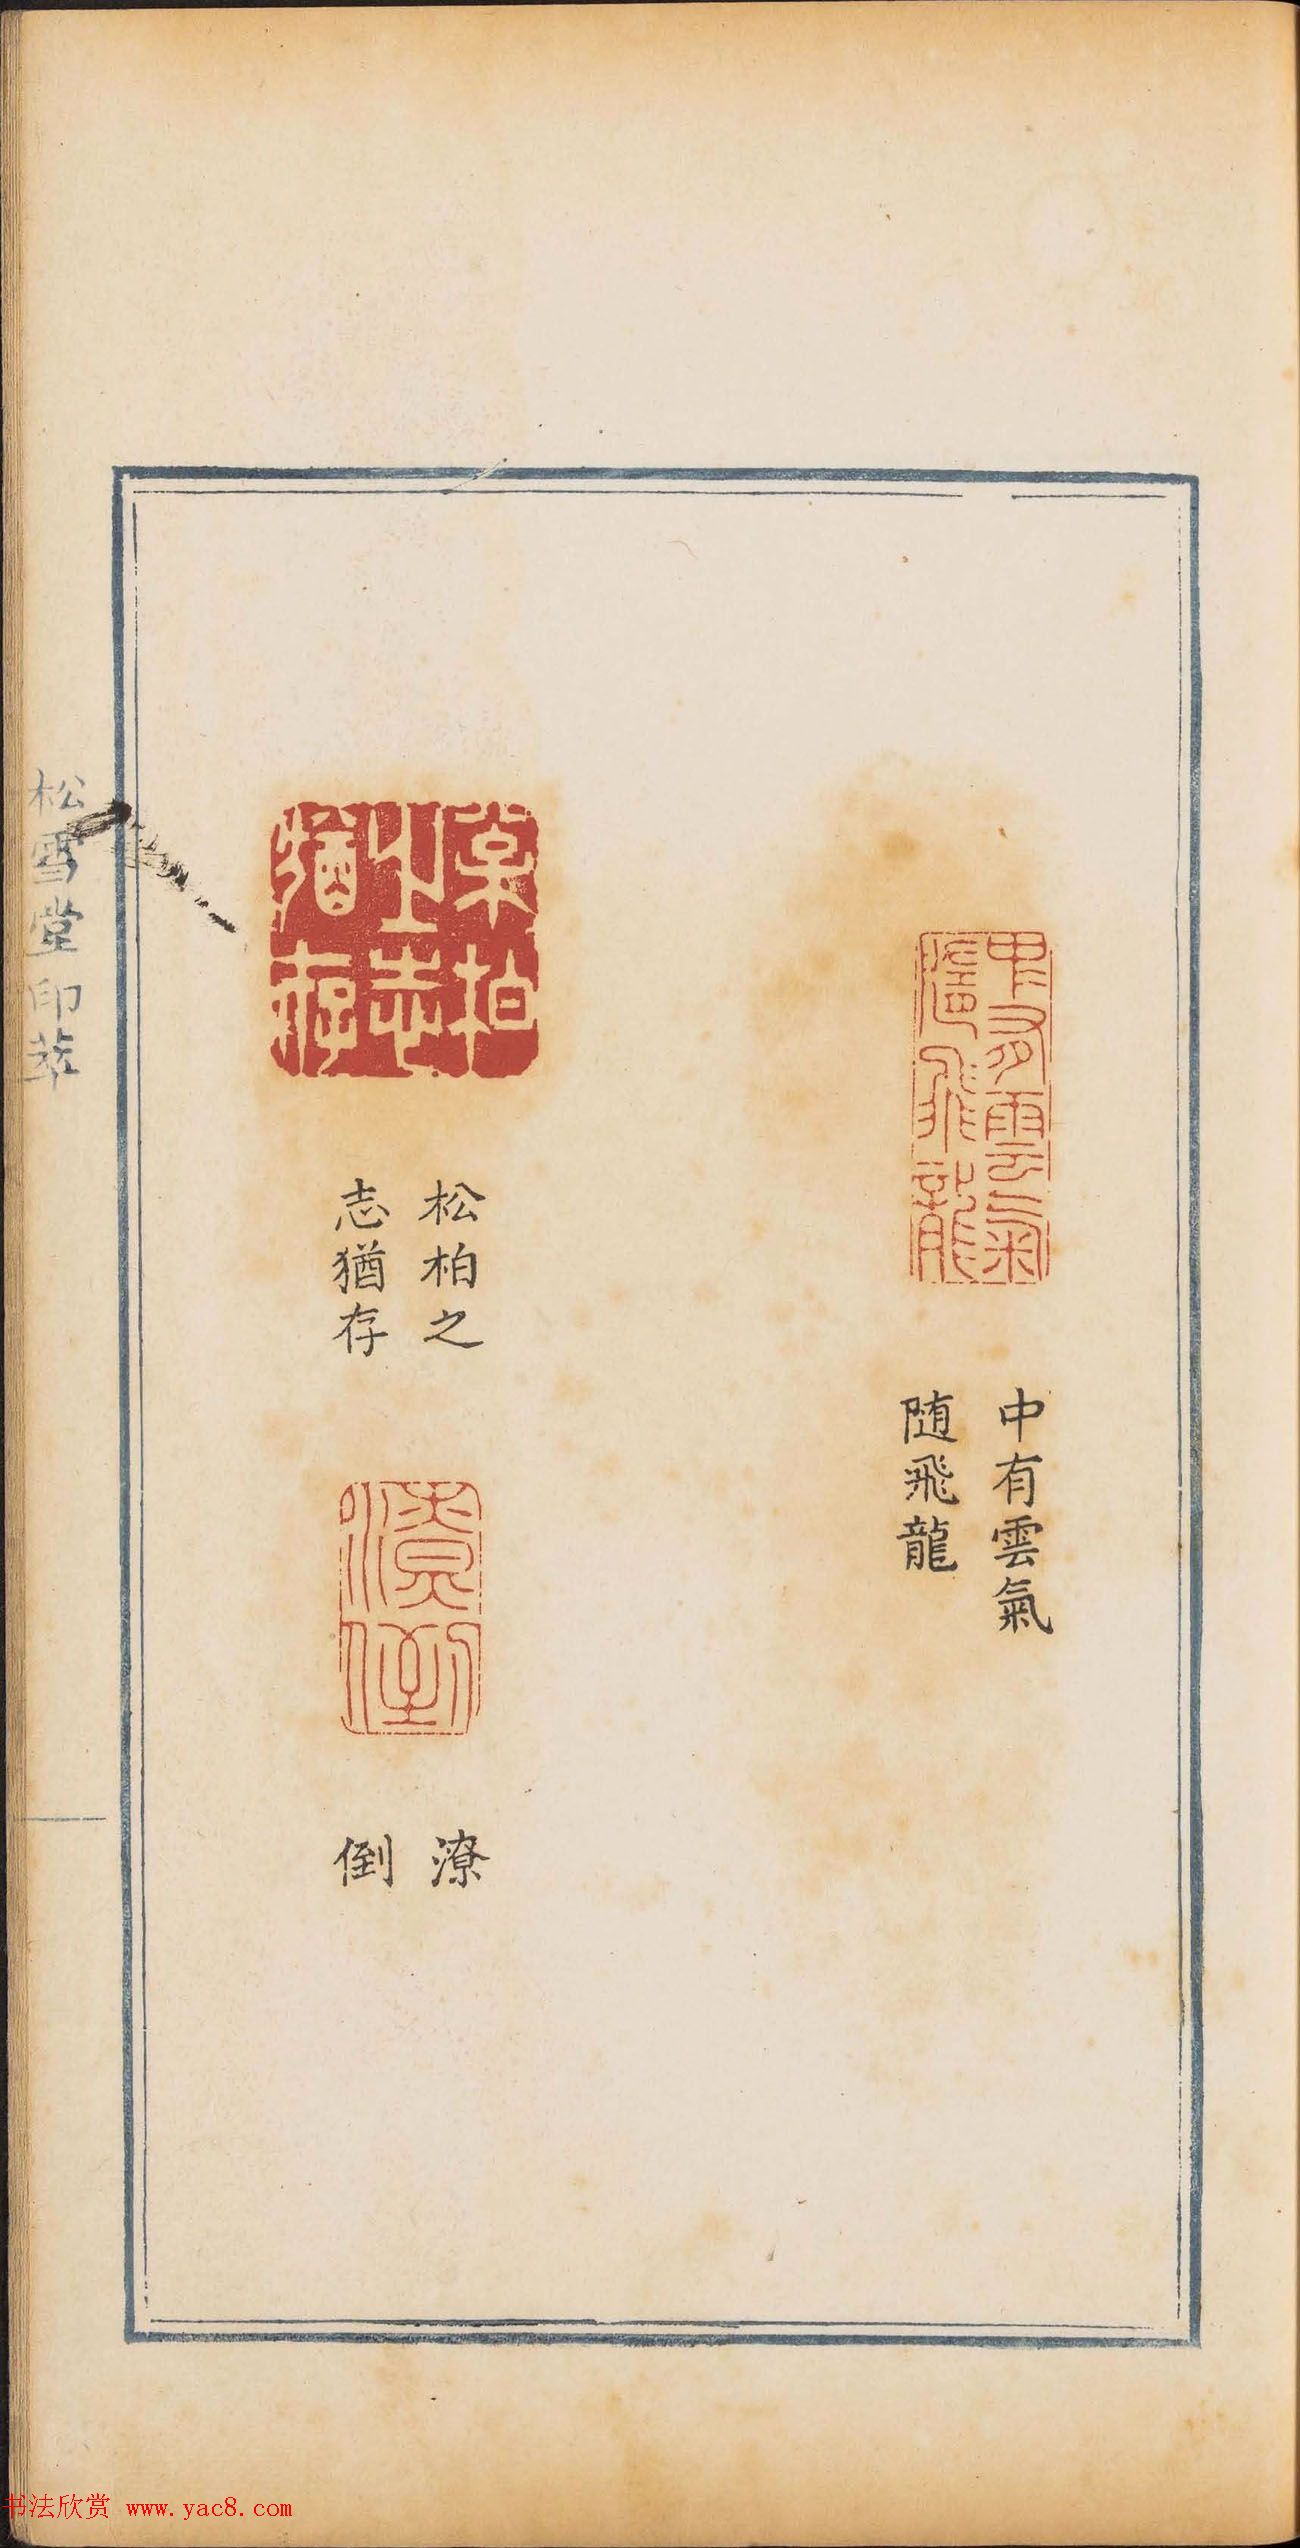 中有雲氣
随飛龍
中有雲氣
随飛龍
松柏之志猶存
松柏之
志猶存
潦倒
潦
倒
松雪堂印萃
书法欣赏 www.yac8.com